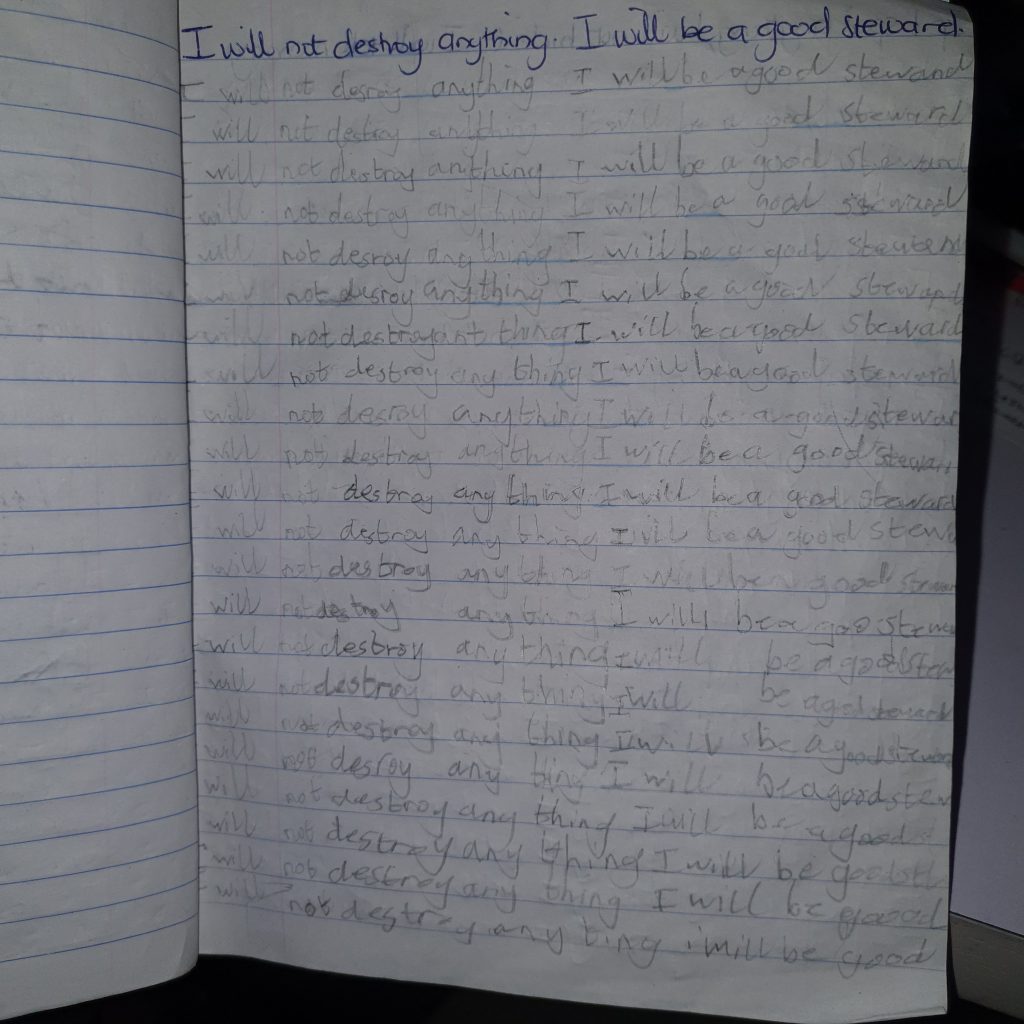 I will not destroy anything. I will be a good steward.
I will not desroy anything I will be a good steward
I will not destroy anything I will be a good steward
will not destroy anything I will be a good steward
will not destroy any thing I will be a good steward
will not desroy any thing I will be a good
not desroy anything I will be a good steward
will not destroy thing I will be a good steward
will not destroy any thing I will be a good steward
will not desroy anything I will be a good stewar
will not destroy anything I will be a good stewar
will not destroy any thing I will be a good steward
will not destroy any thing I will be a good stew
will not destroy any thing I will be a good
will not destroy any thing I will be a goo stew
will not destroy any thing I will be a good stew
will not destroy any thing I will be a good steward
will not destroy any thing I will be a good steward
will not desroy any ting I will be a good stew
will not destroy any thing I will be a good
will not destroy any thing I will be good
will not destroy any thing I will be good
I will not destry any ting i will be good